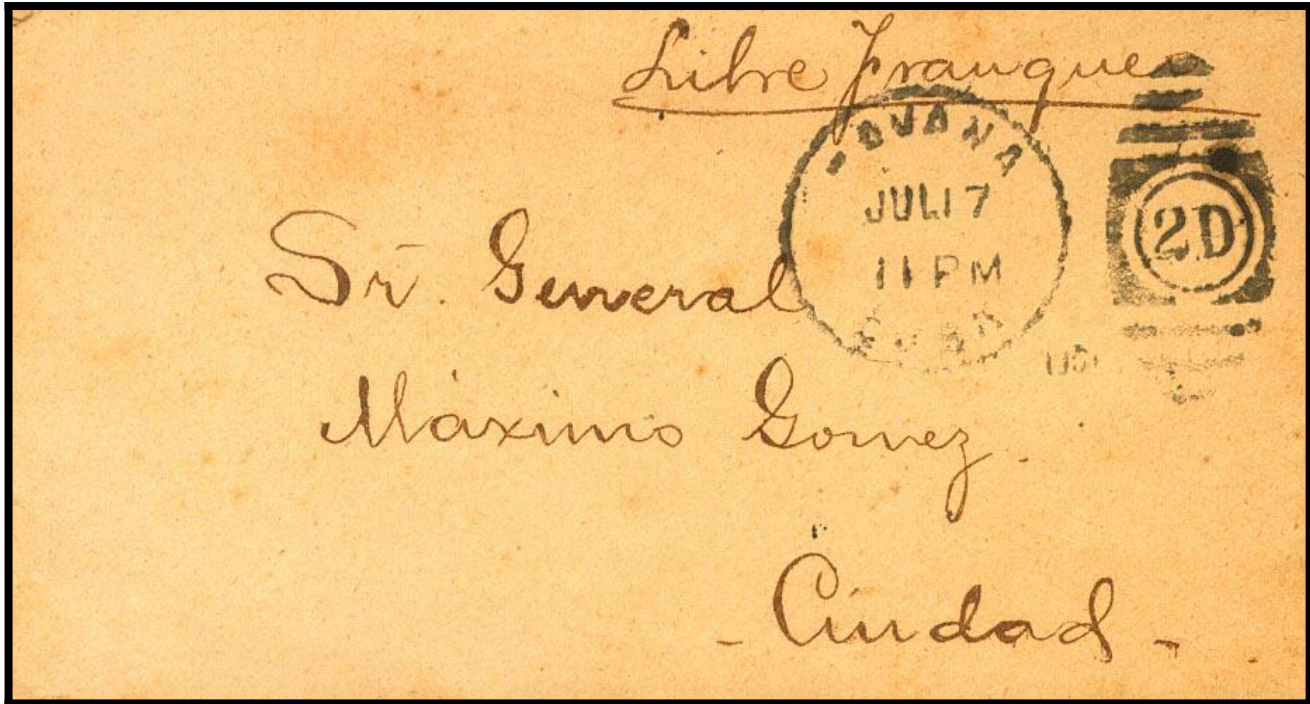 Libre franqueo
HAVANA
JUL 17
11 PM
CUBA
2D
Sr. General
Máximo Gomez.
- Ciudad -